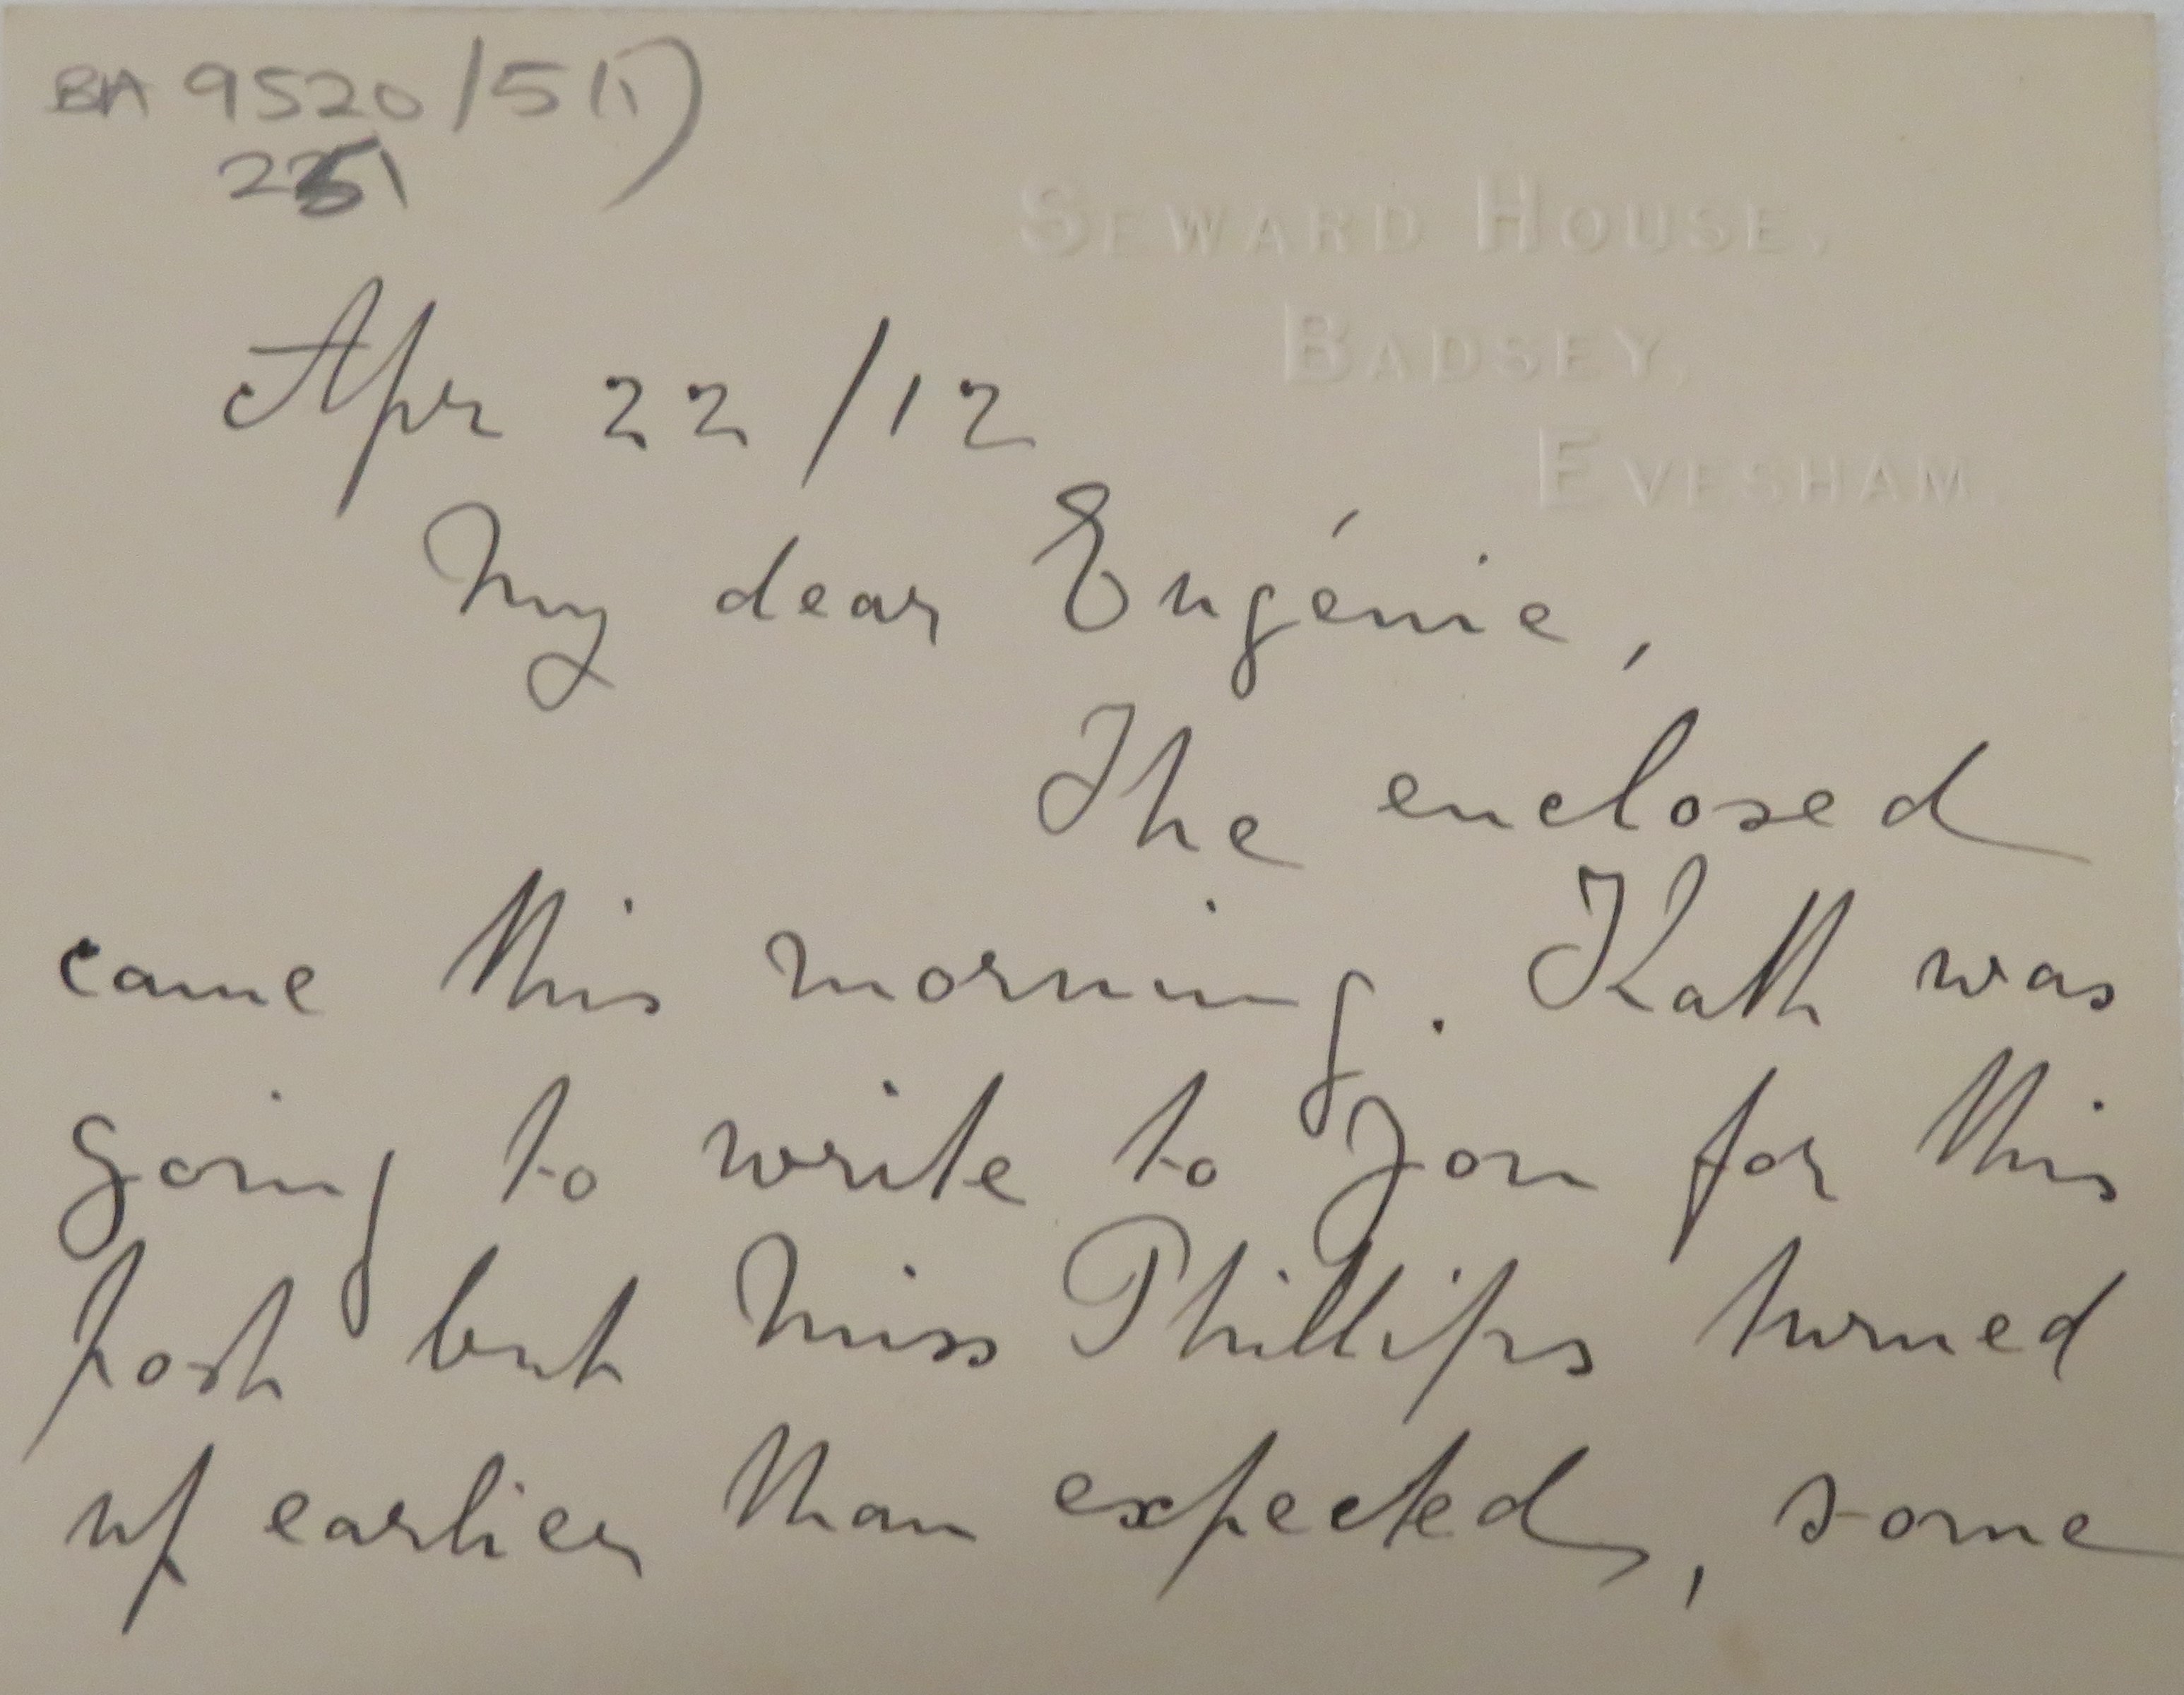 BA 9520/5(1)
SEWARD HOUSE,
BADSEY,
EVESHAM.
Apr 22/12
My dear Eugénie,
The enclosed
came this morning. Kath was
going to write to you for this
post but Miss Phillips turned
up earlier than expected, some